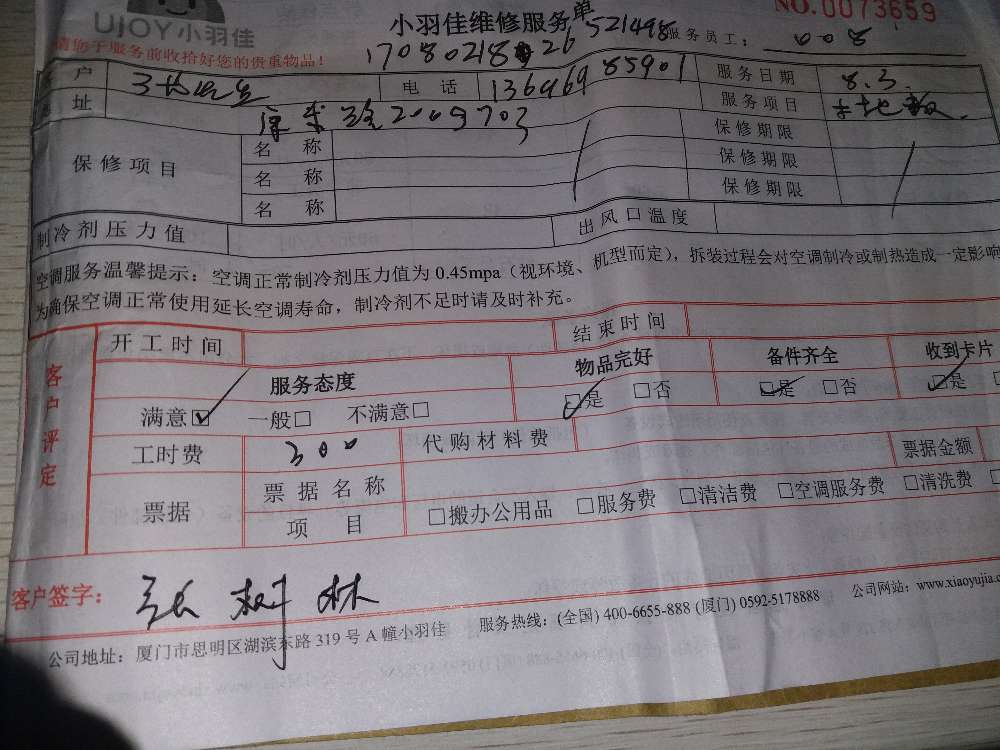 UJOY小羽佳
小羽佳维修服务单
NO.0073659
请您于服务前收拾好您的贵重物品！
服务员工： 008
户
电 话
服务日期 8.3
址
服务项目 地板
保修项目
名 称
保修期限
名 称
保修期限
名 称
保修期限
制冷剂压力值
出风口温度
空调服务温馨提示：空调正常制冷剂压力值为 0.45mpa（视环境、机型而定），拆装过程会对空调制冷或制热造成一定影响
为确保空调正常使用延长空调寿命，制冷剂不足时请及时补充。
客户评定
开工时间
结束时间
服务态度
物品完好
备件齐全
收到卡片
满意☑ 一般□ 不满意□
☑是 □否
☑是 □否
☑是
工时费 300
代购材料费
票据
票据名称
票据金额
项 目
□搬办公用品 □服务费 □清洁费 □空调服务费 □清洗费
客户签字： 张树林
公司地址：厦门市思明区湖滨东路 319 号 A 幢小羽佳 服务热线：(全国) 400-6655-888 (厦门) 0592-5178888 公司网站：www.xiaoyujia.c